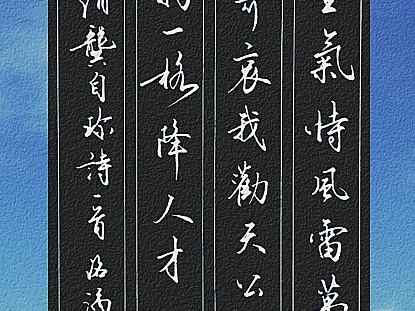 生氣恃風雷萬
哀我勸天公
一格降人才
清龔自珍詩一首